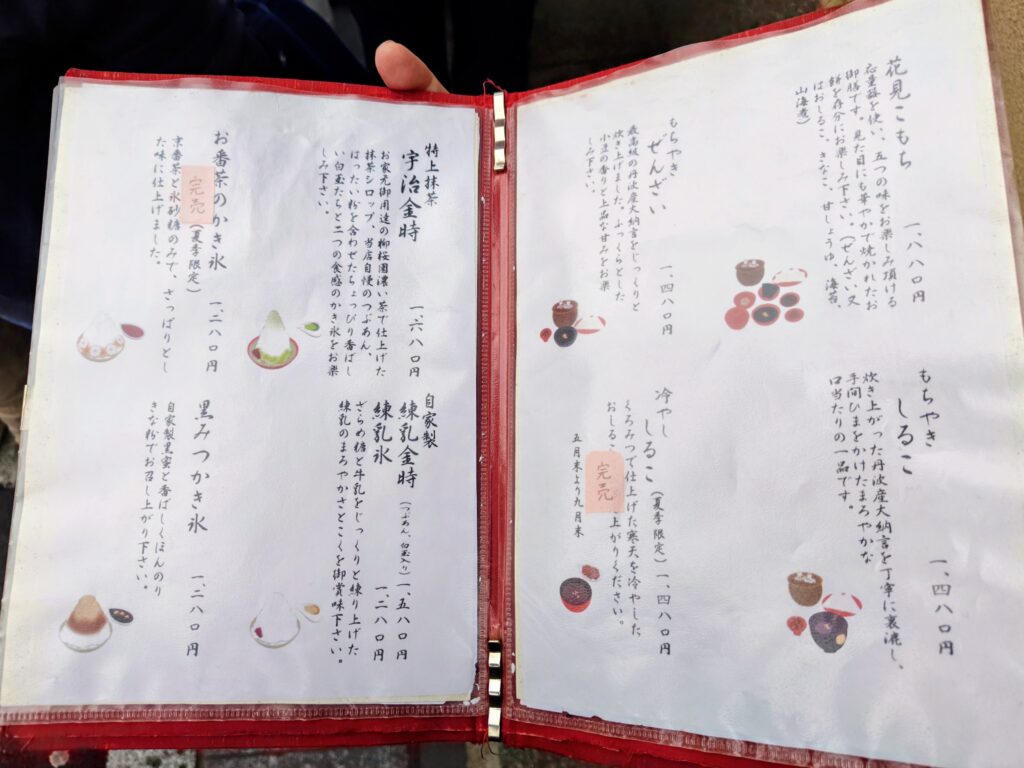 花見こもち
応量器を使い、五つの味をお楽しみ頂ける
御膳です。見た目にも華やかで焼かれたお
餅を存分にお楽しみ下さい。(ぜんざい又
はおしるこ、きなこ、甘しょうゆ、海苔、
山海煮)
一、八八〇円
もちやき
ぜんざい
最高級の丹波産大納言をじっくりと
炊き上げました。ふっくらとした
小豆の香りと上品な甘みをお楽
しみ下さい。
一、四八〇円
もちやき
しるこ
炊き上がった丹波産大納言を丁寧に裏漉し、
手間ひまをかけたまろやかな
口当たりの一品です。
一、四八〇円
冷やし
しるこ(夏季限定)
くろみつで仕上げた寒天を冷やした
おしるこ
上がりください。
完売
五月末より九月末
一、四八〇円
特上抹茶
宇治金時
お家元御用達の柳桜園濃い茶で仕上げた
抹茶シロップ、当店自慢のつぶあん、
はったい粉を合わせたちょっぴり香ばし
い白玉たちと二つの食感のかき氷をお楽
しみ下さい。
一、六八〇円
お番茶のかき氷
完売
(夏季限定)
京番茶と氷砂糖のみで、さっぱりとし
た味に仕上げました。
一、二八〇円
自家製
練乳金時(つぶあん、白玉入り)一、五八〇円
練乳氷 一、二八〇円
ざらめ糖と牛乳をじっくりと練り上げた
練乳のまろやかさとこくを御賞味下さい。
黒みつかき氷
自家製黒蜜と香ばしくほんのり
きな粉でお召し上がり下さい。
一、二八〇円